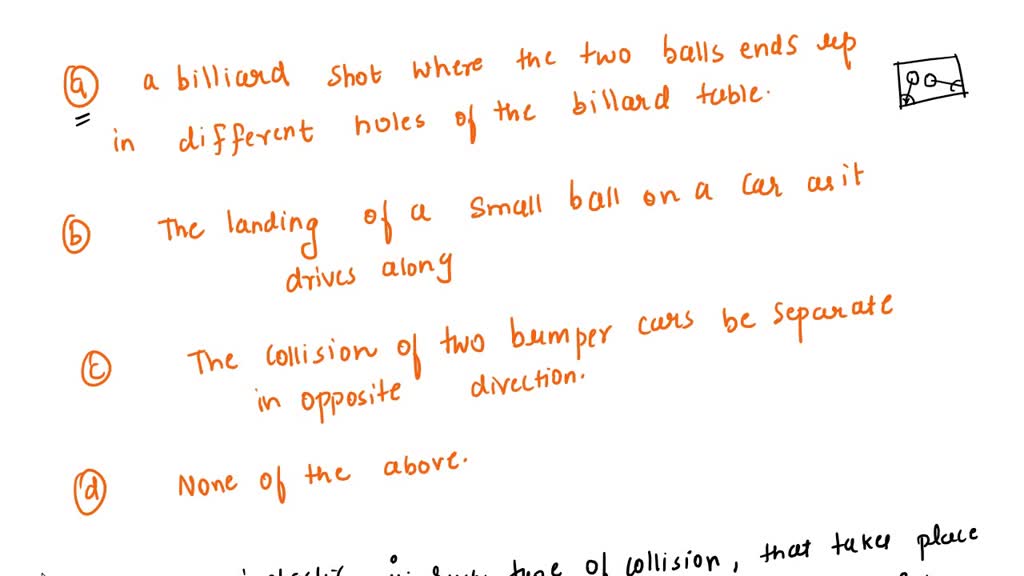 a a billiard shot where the two balls ends up
in different holes of the billard table.
b The landing of a small ball on a car as it
drives along
c The collision of two bumper cars be separate
in opposite direction.
d None of the above.
type of collision, that takes place